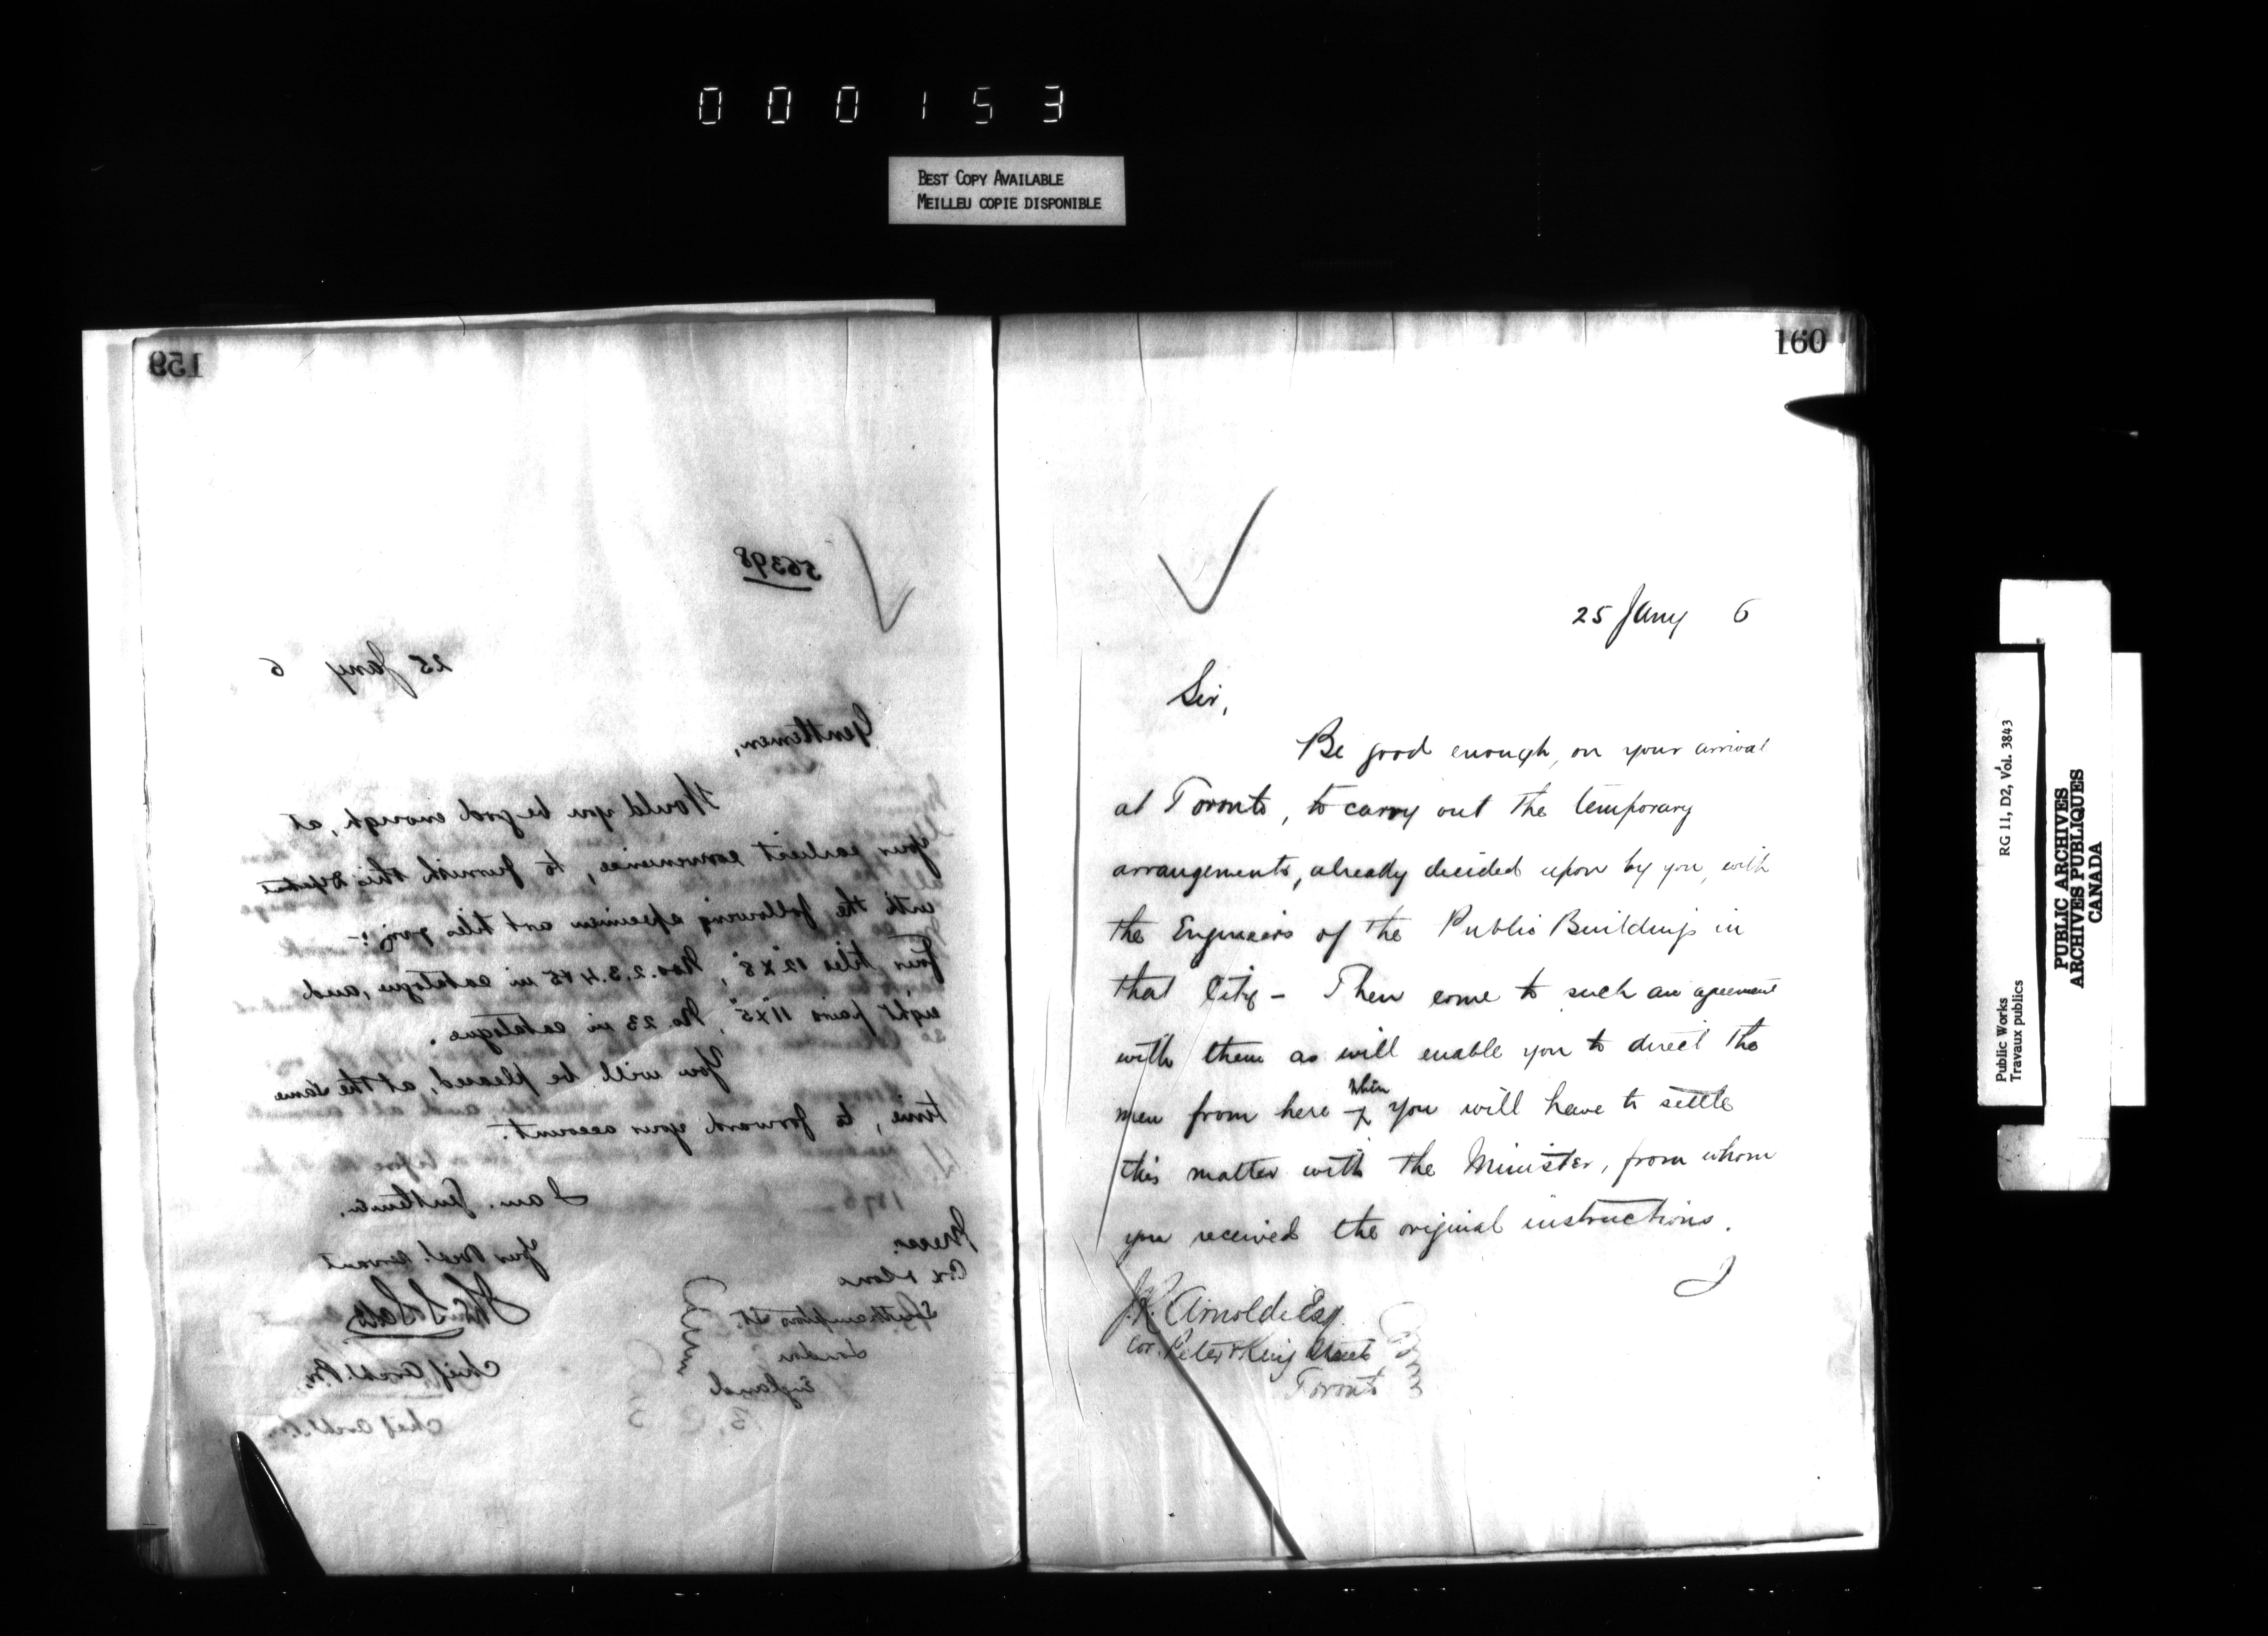 000153
BEST COPY AVAILABLE
MEILLEU COPIE DISPONIBLE
159
56398
25 Jany 6
Gentlemen,
Would you be good enough, at
your earliest convenience, to furnish this Departmt
with the following specimen art tiles viz:-
Four tiles 12"x8", Nos. 2.3.4 & 5 in catalogue, and
eight pairs 11"x5", No. 23 in catalogue.
You will be pleased, at the same
time, to forward your account.
I am, Gentlemen,
Your Obed. Servant
Thos S. Scott
Chief Archt. P.W.
Messrs.
Cox & Sons
Southampton St.
London
England
160
25 Jany 6
Sir,
Be good enough, on your arrival
at Toronto, to carry out the temporary
arrangements, already decided upon by you, with
the Engineers of the Public Buildings in
that City - Then come to such an agreement
with them as will enable you to direct the
men from here - when you will have to settle
this matter with the Minister, from whom
you received the original instructions.
J.R. Arnoldi Esq.
Cor. Peter & King Streets
Toronto
Public Works RG 11, D2, Vol. 3843
Travaux publics
PUBLIC ARCHIVES
ARCHIVES PUBLIQUES
CANADA